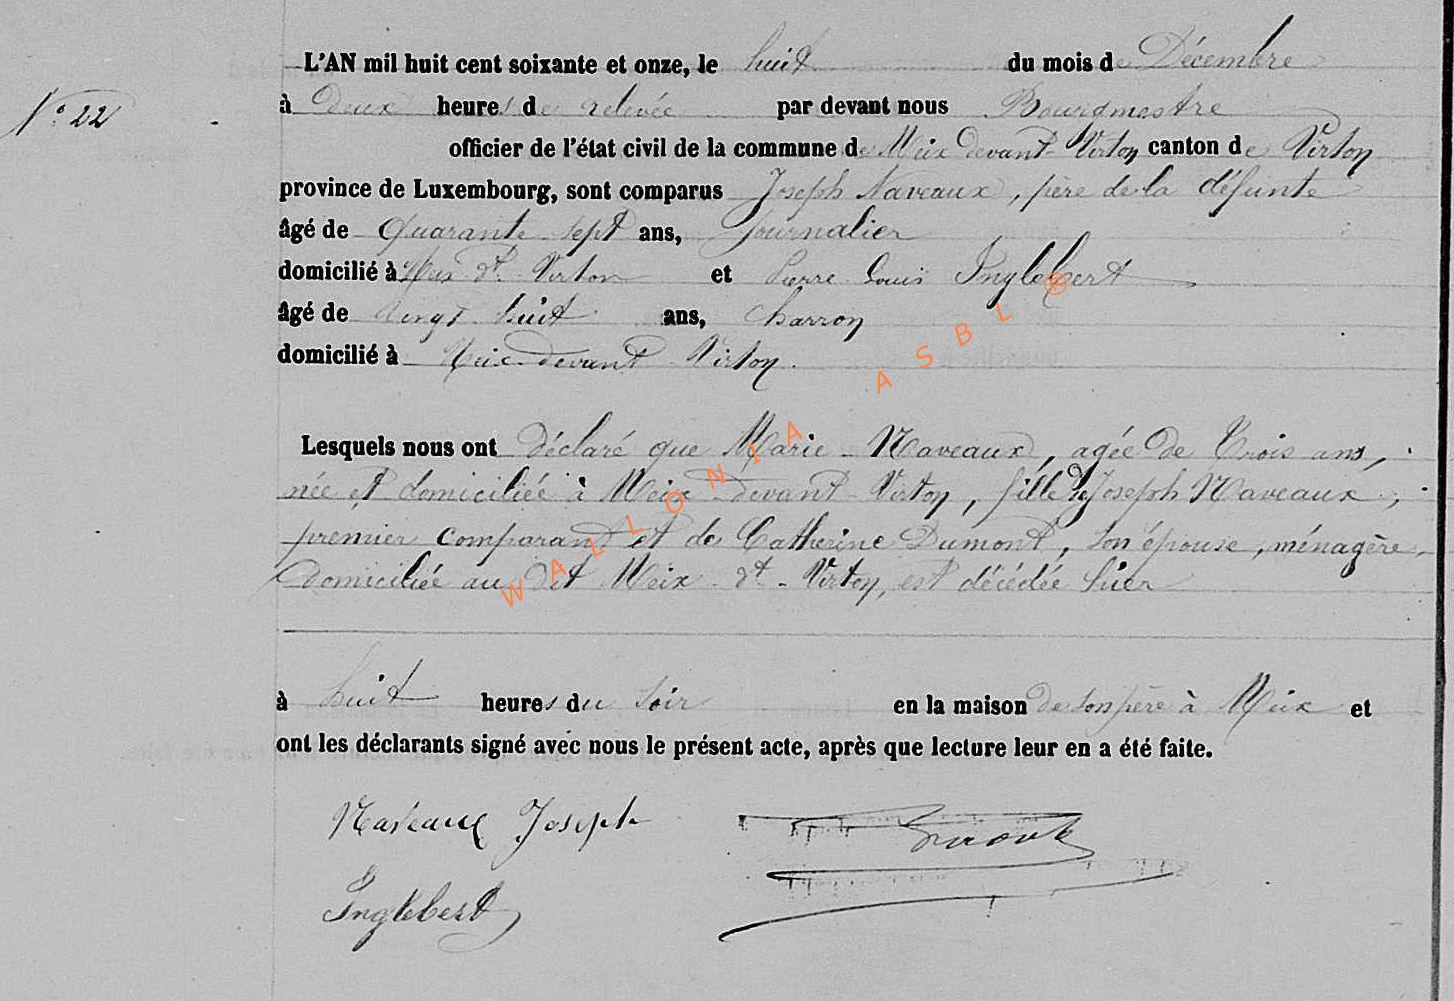 L'AN mil huit cent soixante et onze, le huit du mois de Décembre
N° 22
à Deux heures de relevée par devant nous Bourgmestre
officier de l'état civil de la commune de Meix devant Virton canton de Virton
province de Luxembourg, sont comparus Joseph Naveaux, père de la défunte
âgé de Quarante sept ans, Journalier
domicilié à Meix dt Virton et Pierre Louis Inglebert
âgé de vingt huit ans, Charron
domicilié à Meix devant Virton.
Lesquels nous ont déclaré que Marie Naveaux, agée De Trois ans,
née et domiciliée à Meix devant Virton, fille de Joseph Naveaux,
premier comparant et de Catherine Dumont, son épouse, ménagère,
Domiciliée au dit Meix dt Virton, est décédée hier
à huit heures du soir en la maison de son père à Meix et
ont les déclarants signé avec nous le présent acte, après que lecture leur en a été faite.
Naveaux Joseph
Inglebert
WALLONIA ASBL ®